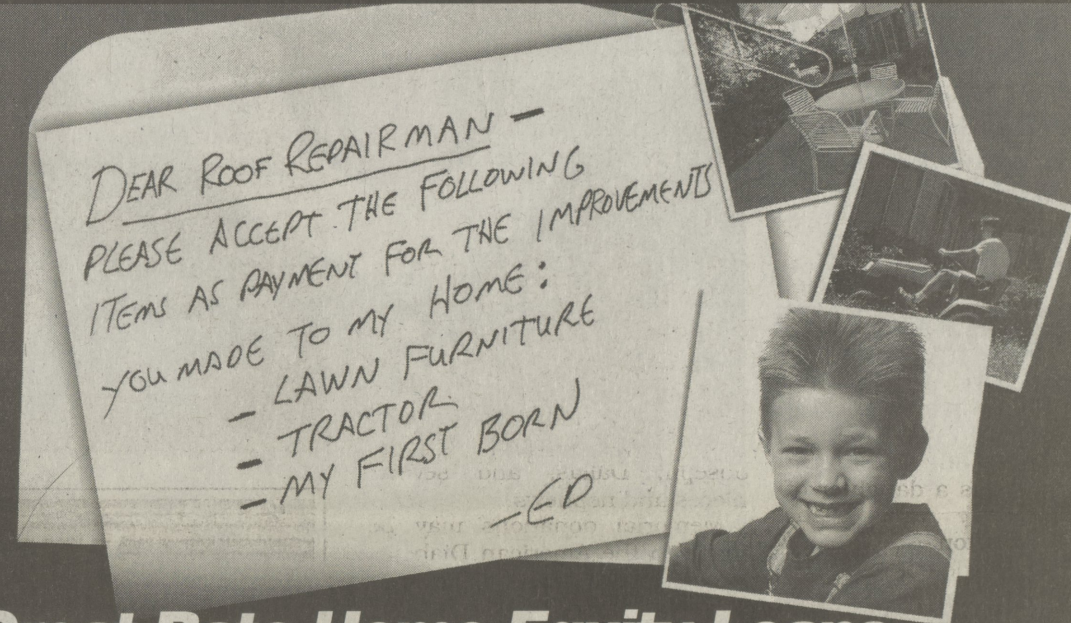 DEAR ROOF REPAIRMAN –
PLEASE ACCEPT THE FOLLOWING
ITEMS AS PAYMENT FOR THE IMPROVEMENTS
YOU MADE TO MY HOME:
– LAWN FURNITURE
– TRACTOR
– MY FIRST BORN
– ED
Great Rate Home Equity Loans